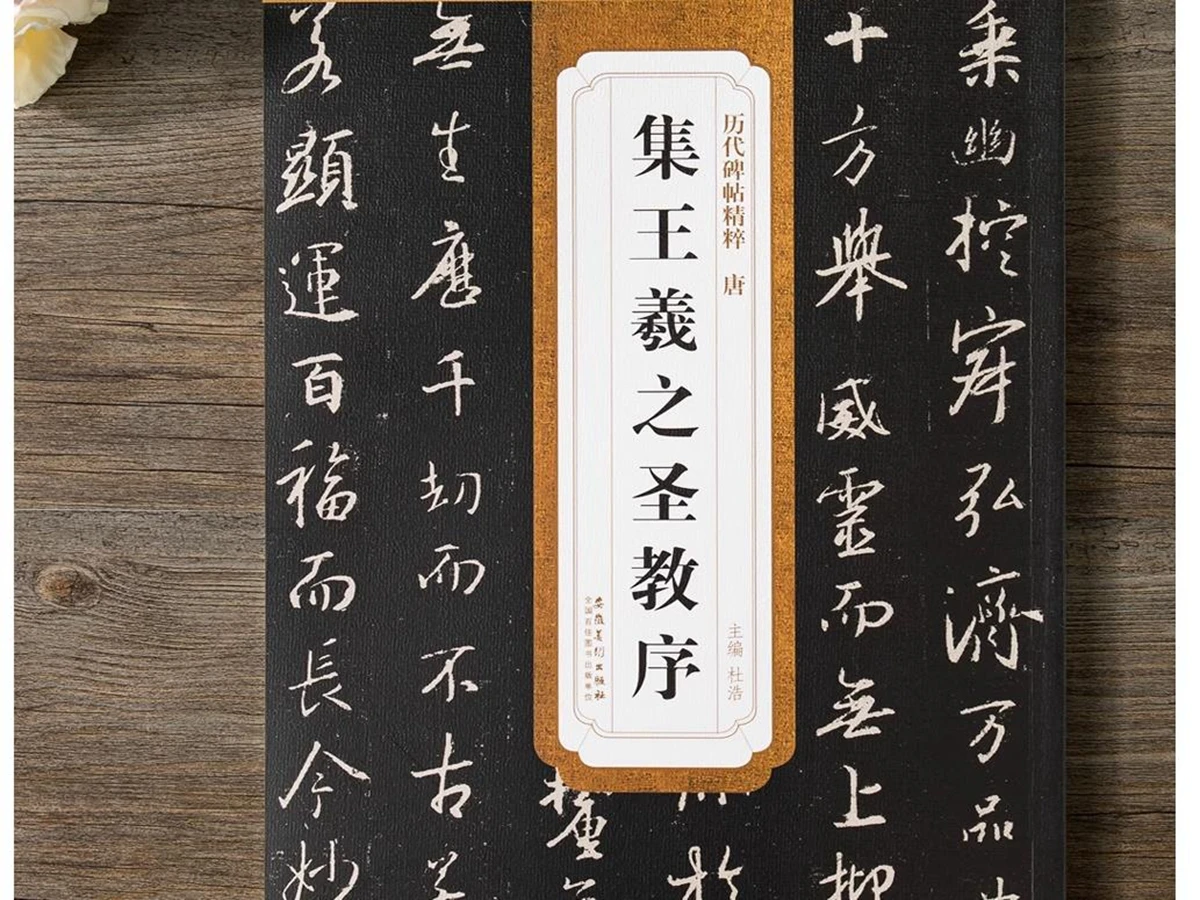 乘幽控寂弘濟万品
十方舉威靈而無上抑
历代碑帖精粹 唐
主编 杜浩
集王羲之圣教序
安徽美术出版社
全国百佳图书出版单位
於
無生歷千劫而不古若
若顯運百福而長今妙